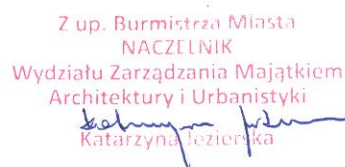 Z up. Burmistrza Miasta
NACZELNIK
Wydziału Zarządzania Majątkiem
Architektury i Urbanistyki
Katarzyna Jezierska